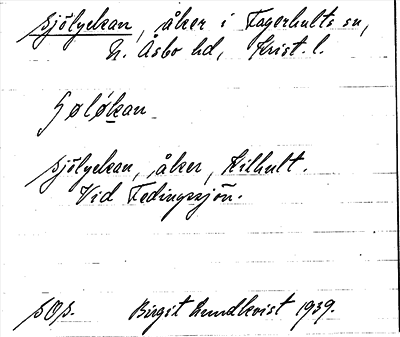 Sjölyckan, åker i Fagerhults sn,
N. Åsbo hd, Krist. l.
sjölyckan, åker, Kilhult.
Vid Fedingesjön.
SOS. Birgit Lundkvist 1939.